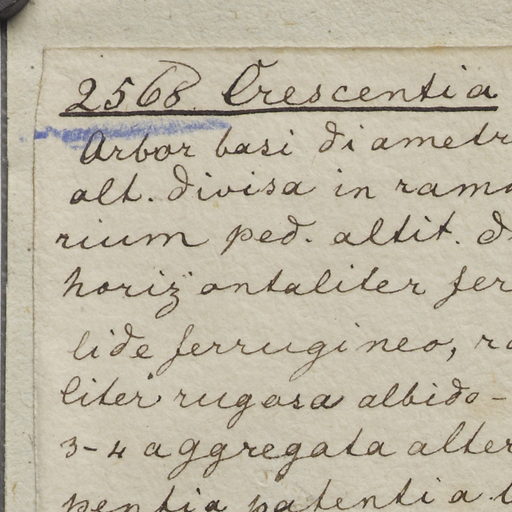 2568. Crescentia
Arbor basi diametr
alt. divisa in ramo
rium ped. altit. d
horizontaliter fer
lide ferrugineo, ra
liter rugosa albido-
3-4 aggregata alter
pentia patentia